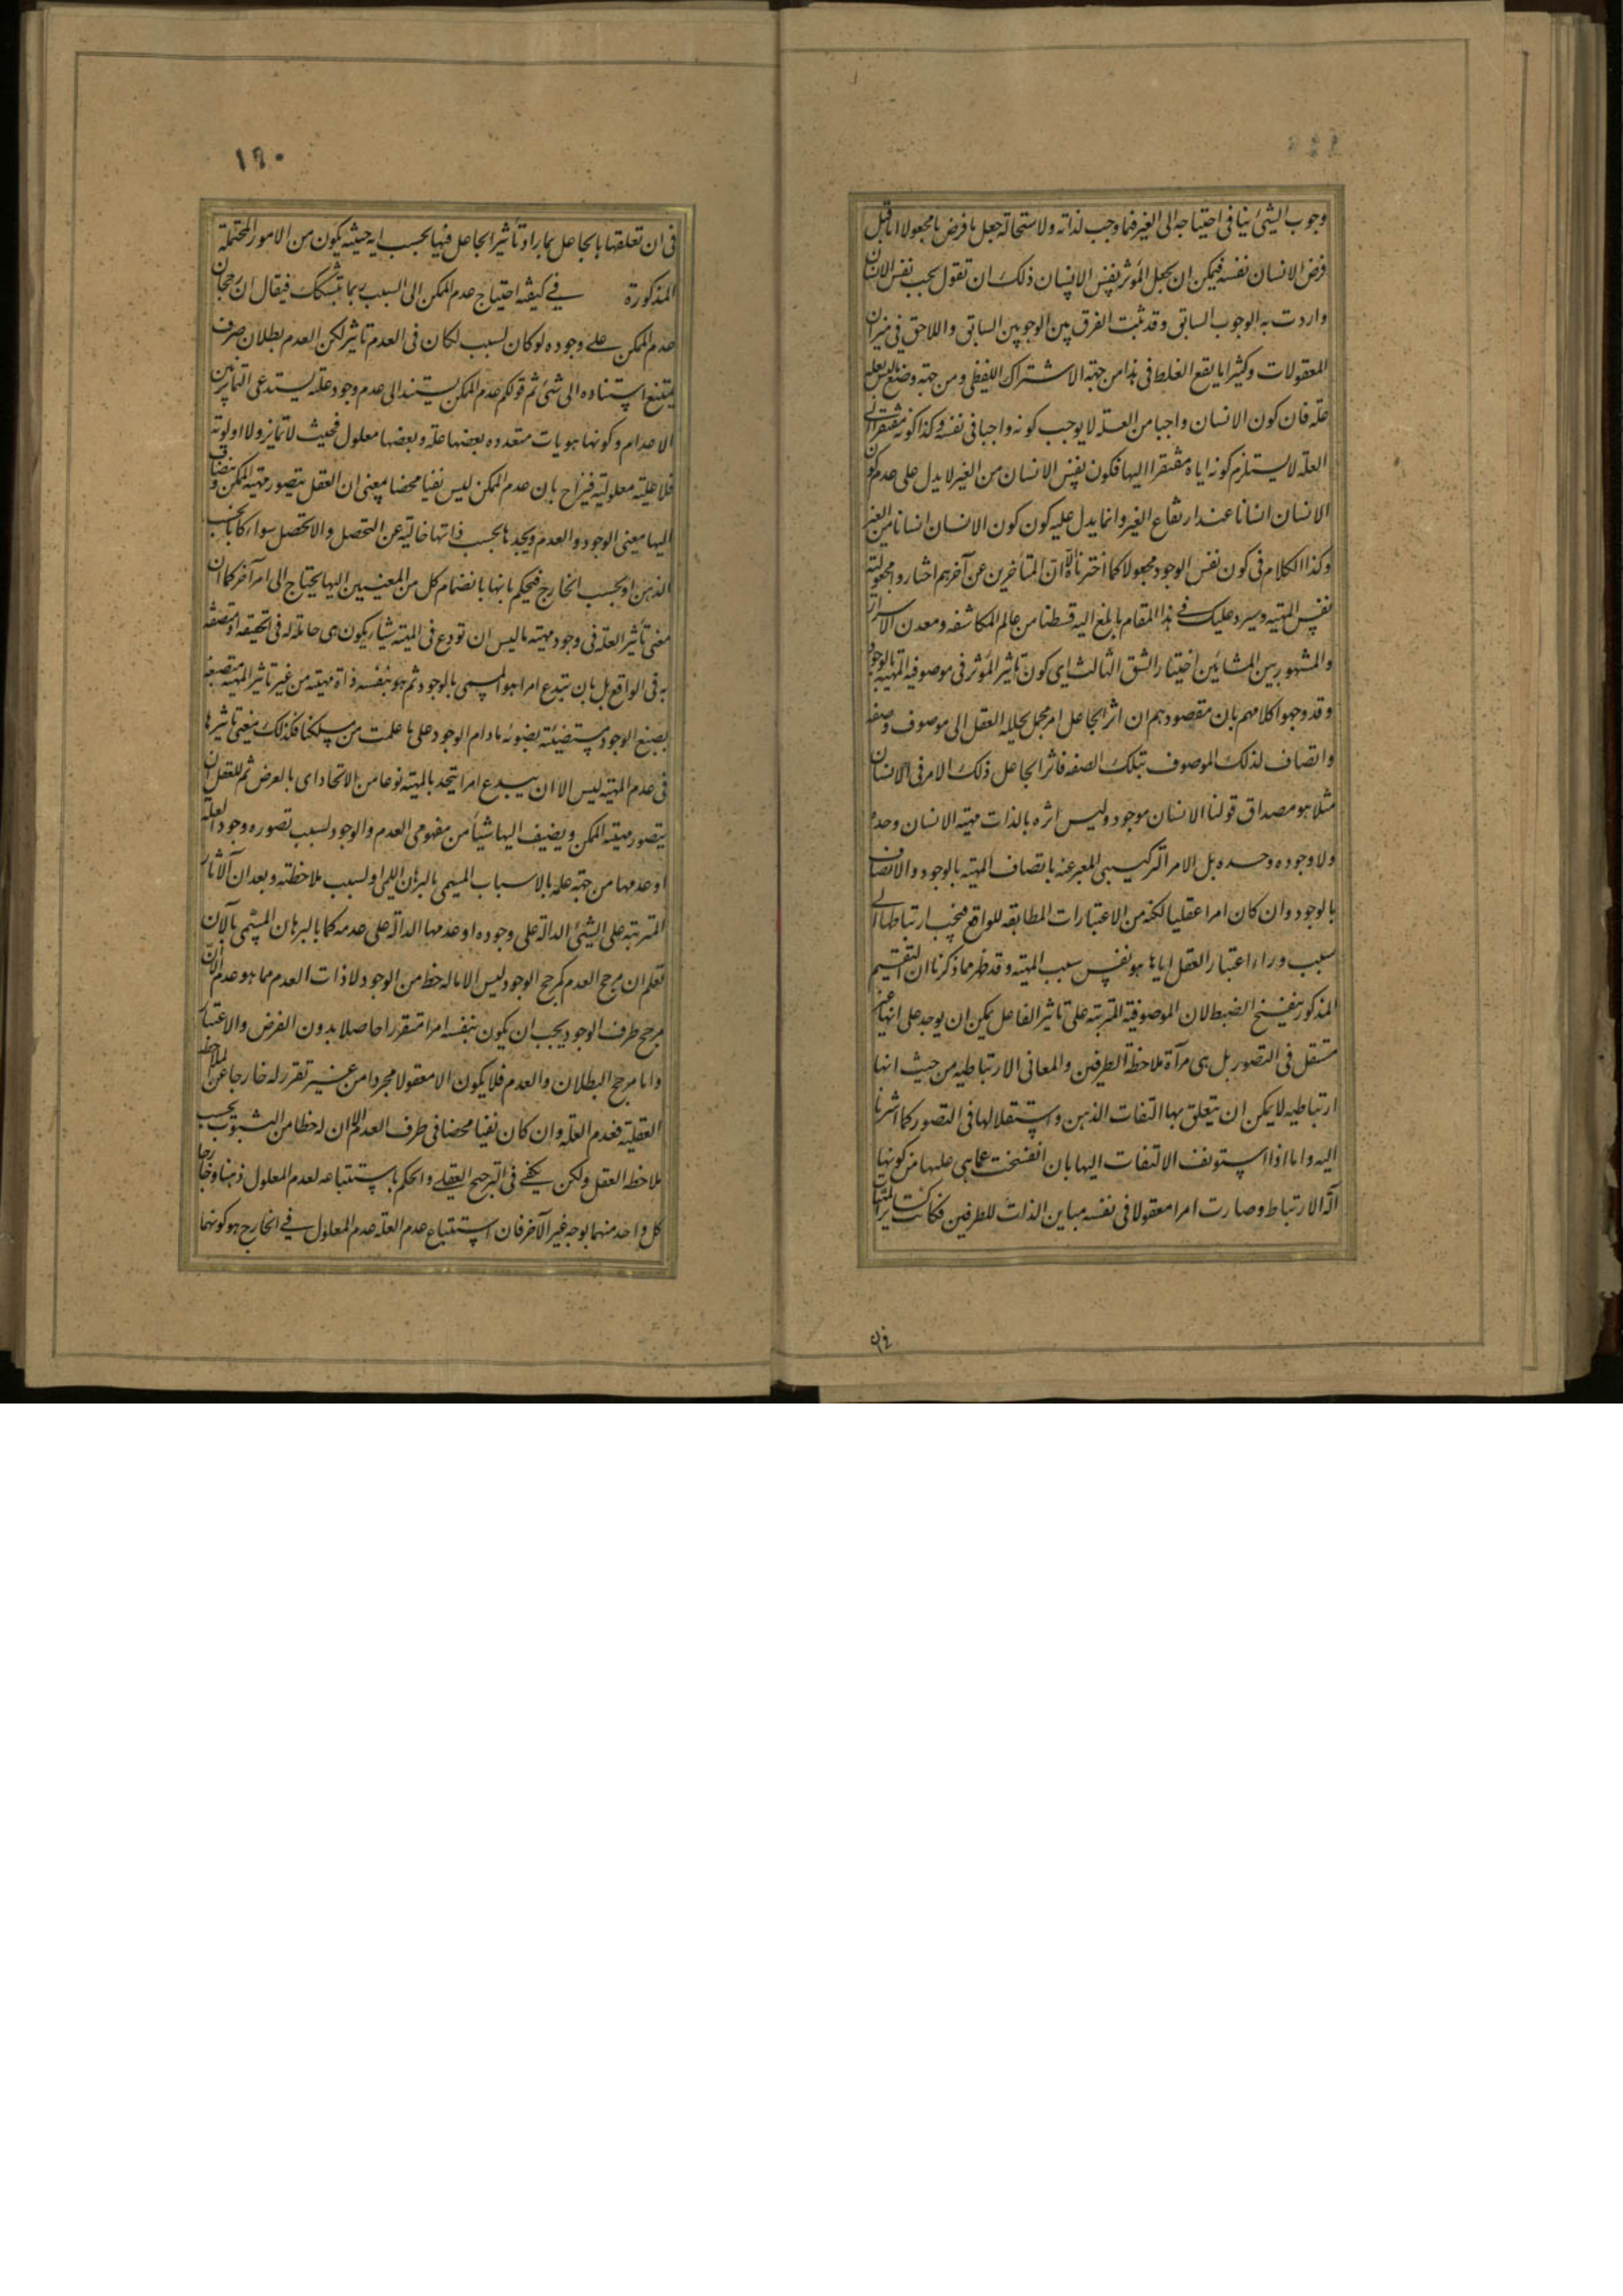 وجوب الشيئ ينافى احتياجه الى الغير فما وجب لذاته ولاستحالة جعل ما فرض مجعولا اما قبل
فرض الانسان نفسه فيمكن ان يجعل المؤثر نفس الانسان ذلك ان تقول يجب نفس الانسان
واردت به الوجوب السابق وقد ثبت الفرق بين الوجوبين السابق واللاحق فى ميزان
المعقولات وكثيرا ما يقع الغلط فى هذا من جهة الاشتراك اللفظى ومن جهة وضع ما ليس بعلة
علة فان كون الانسان واجبا من العلة لا يوجب كونه واجبا فى نفسه وكذا كونه مفتقرا الى
العلة لا يستلزم كونه اياه مفتقرا اليها فكون نفس الانسان من الغير لا يدل على عدم كون
الانسان انسانا عند ارتفاع الغير وانما يدل عليه كون كون الانسان انسانا من الغير
وكذا الكلام فى كون نفس الوجود مجعولا كما اخترناه الا ان المتأخرين عن آخرهم اختاروا مجعولية
نفس المهية وسيرد عليك فى هذا المقام ما بلغ اليه قسطنا من عالم المكاشفه ومعدن الاسرار
والمشهور بين المشائين اختيار الشق الثالث اى كون تاثير المؤثر فى موصوفية المهية بالوجود
وقد وجهوا كلامهم بان مقصودهم ان اثر الجاعل امر مجمل يحلله العقل الى موصوف وصفه
واتصاف لذلك الموصوف بتلك الصفه فاثر الجاعل ذلك الامر فى الانسان
مثلا هو مصداق قولنا الانسان موجود وليس اثره بالذات مهية الانسان وحده
ولا وجوده وحده بل الامر التركيبى المعبر عنه باتصاف المهية بالوجود والاتصاف
بالوجود وان كان امرا عقليا لكنه من الاعتبارات المطابقه للواقع فيجب ارتباطها الى
سبب وراء اعتبار العقل اياها هو نفس سبب المهية وقد ظهر مما ذكرنا ان التقسيم
المذكور ينفسخ الضبط لان الموصوفية المترتبة على تاثير الفاعل يمكن ان يوجد على انها غير
مستقل فى التصور بل هى مرآة ملاحظة الطرفين والمعانى الارتباطيه من حيث انها
ارتباطية لا يمكن ان يتعلق بها التفات الذهن واستقلالها فى التصور كما اشرنا
اليه واما اذا استونف الالتفات اليها بان انفسخت عما هى عليها من كونها
آلة الارتباط وصارت امرا معقولا فى نفسه مباين الذات للطرفين فكانت
فى ان تعلقها بالجاعل بما راد تأثير الجاعل فيها بحسب اية حيثية يكون من الامور المحتملة
المذكورة فى كيفية احتياج عدم الممكن الى السبب ربما يتشكك فيقال ان رجحان
عدم الممكن على وجوده لو كان لسبب لكان فى العدم تاثير لكن العدم بطلان صرف
يمتنع استناده الى شئ ثم قولكم عدم الممكن يستند الى عدم وجود علة يستدعى التمايز بين
الاعدام وكونها هويات متعدده بعضها علة وبعضها معلول فحيث لا تمايز ولا اولوية
فلا علية معلولية فيزاح بان عدم الممكن ليس نفيا محضا بمعنى ان العقل يتصور مهية الممكن وينضاف
اليها معنى الوجود والعدم ويجدها بحسب ذاتها خالية عن التحصل واللاتحصل سواء كانا بحسب
الذهن او بحسب الخارج فيحكم بانها بانضمام كل من المعنيين اليها يحتاج الى امر آخر كما ان
معنى تاثير العلة فى وجود مهية ما ليس ان تودع فى المهية شيأ يكون هى حاملة له فى الحقيقه او متصفة
به فى الواقع بل بان تبدع امرا هو المسمى بالوجود ثم هو بنفسه ذاة مهية من غير تاثير المهية متصبغة
بصبغ الوجود مستضيئة بضوئه ما دام الوجود على ما علمت من مسلكنا فكذلك معنى تاثيرها
فى عدم المهية ليس الا ان يبدع امرا يتحد بالمهية نوعا من الاتحاد اى بالعرض ثم للعقل ان
يتصور مهية الممكن ويضيف اليها شيأ من مفهومى العدم والوجود لسبب تصوره وجود العلة
او عدمها من جهة علمه بالاسباب المسمى بالبرهان اللمى او لسبب ملاحظته وبعد ان الآثار
المترتبة على الشيئ الدالة على وجوده او عدمها الدالة على عدمه كما بالبرهان المسمى بالآن
تعلم ان مرجح العدم كمرجح الوجود ليس الا ما له حظ من الوجود لا ذات العدم مما هو عدم الا ان
مرجح طرف الوجود يجب ان يكون بنفسه امرا متقررا حاصلا بدون الفرض والاعتبار
واما مرجح البطلان والعدم فلا يكون الا معقولا مجردا من غير تقرر له خارجا عن ملاحظه
العقلية فعدم العلة وان كان نفيا محضا فى ظرف العدم الا ان له حظا من الثبوت بحسب
ملاحظه العقل ولكن يكفى فى الترجيح العقلى والحكم باستتباعه لعدم المعلول ذهنا وخارجا
كل واحد منهما بوجه غير الآخر فان استتباع عدم العلة عدم المعلول فى الخارج هو كونهما